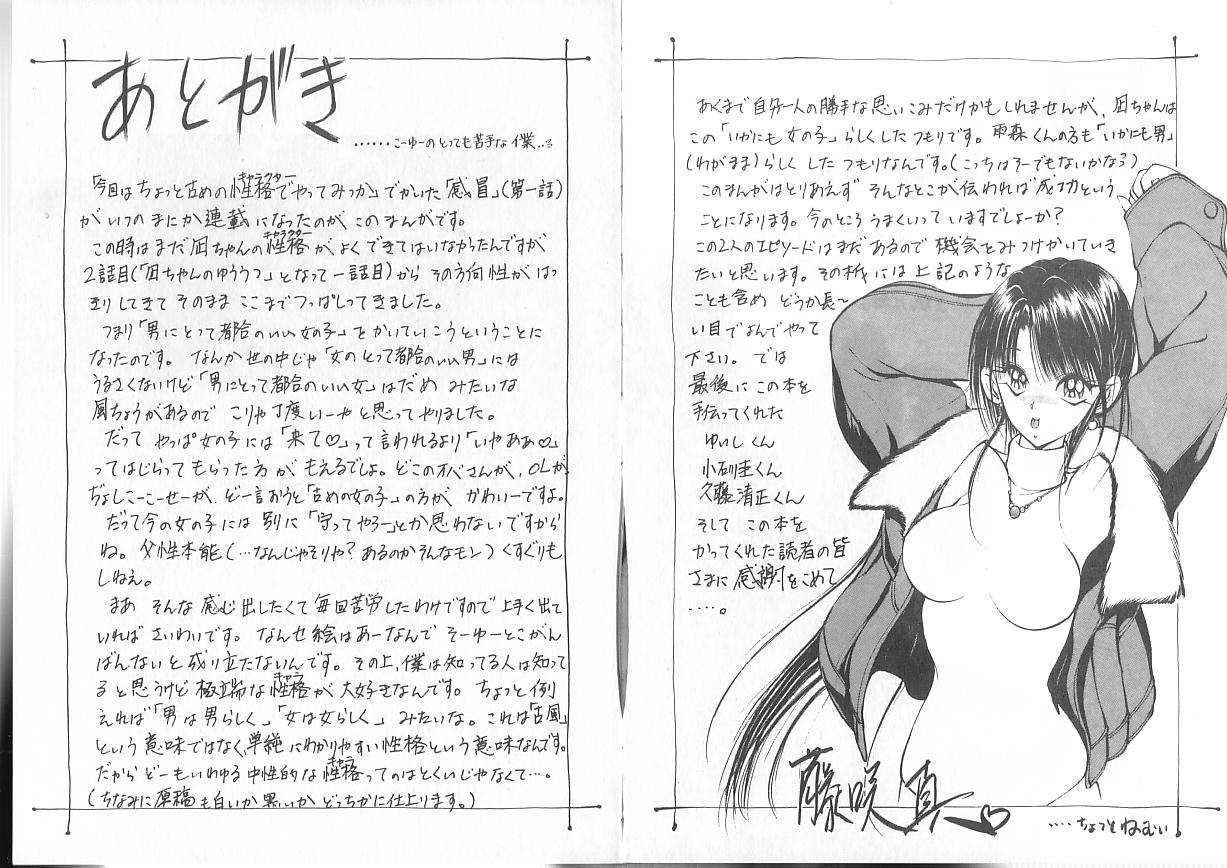 あとがき
……こーゆーのとっても苦手な僕..3
「今回はちょっと古めの性格でやってみっか」でかいた「感冒」(第一話)
キャラクター
がいつのまにか連載になったのがこのまんがです。
この時はまだ凪ちゃんの性格がよくできてはいなかったんですが
キャラクター
2話目(「凪ちゃんのゆううつ」となって一話目)から その方向性がはっ
きりしてきて そのまま ここまでつっぱしってきました。
つまり「男にとって都合のいい女の子」をかいていこうということに
なったのです。 なんか世の中じゃ「女のとって都合のいい男」には
うるさくないけど「男にとって都合のいい女」はだめ みたいな
風ちょうがあるので こりゃ丁度いーやと思ってやりました。
だって やっぱ女の子には「来て♡」って言われるより「いやああ♡」
ってはじらってもらった方が もえるでしょ。どこのオバさんが、OLが
ぢょしこーこーせーが、どー言おうと「古めの女の子」の方が かわいーですよ。
だって今の女の子には 別に「守ってやろー」とか思わないですから
ね。父性本能(…なんじゃそりゃ? あるのかそんなモン)くすぐりも
しねぇ。
まあ そんな感じ出したくて毎回苦労したわけですので上手く出て
いれば さいわいです。 なんせ絵はあーなんで そーゆーとこがん
ばんないと成り立たないんです。その上、僕は知ってる人は知って
ると思うけど極端な性格が大好きなんです。ちょっと例
キャラ
えれば「男は男らしく」「女は女らしく」みたいな。これは「古風」
という意味ではなく、単純にわかりやすい性格という意味なんです。
だから どーもいわゆる中性的な性格ってのはとくいじゃなくて…。
キャラ
(ちなみに原稿も白いか黒いか どっちかに仕上ります。)
あくまで自分一人の勝手な思いこみだけかもしれませんが、凪ちゃんは
この「いかにも女の子」らしくしたつもりです。雨森くんの方も「いかにも男」
(わがまま)らしく したつもりなんです。(こっちはそーでもないかな?)
このまんがはとりあえず そんなとこが伝われば成功という
ことになります。今のところ うまくいっていますでしょーか?
この2人のエピソードはまだあるので 機会をみつけかいていき
たいと思います。その折には上記のような
ことも含め どうか長〜
い目でよんでやって
下さい。 では
最後に この本を
手伝ってくれた
ゆいしくん
小砂圭くん
久藤清正くん
そして この本を
かってくれた読者の皆
さまに 感謝をこめて
……。
藤咲真♡
……ちょっとねむい